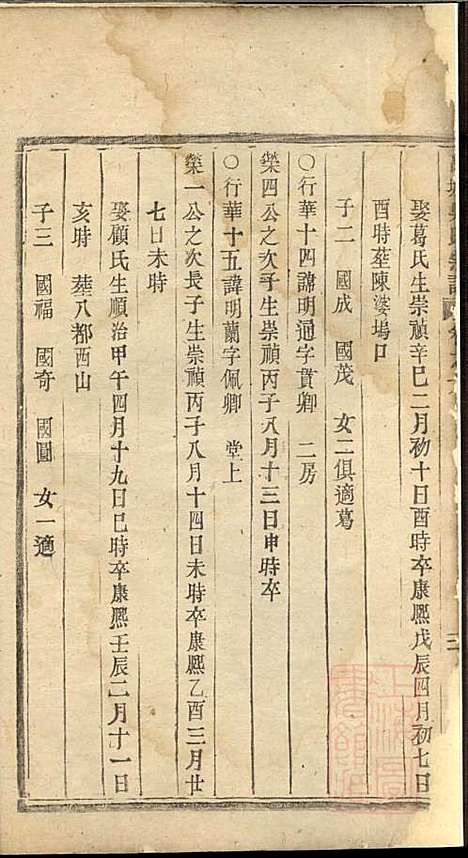 娶葛氏生崇禎辛巳二月初十日酉時卒康熙戊辰四月初七日
酉時葬陳婆塢口
子二 國成 國茂 女二俱適葛
○行華十四諱明通字貫卿 二房
榮四公之次子生崇禎丙子八月十三日申時卒
○行華十五諱明蘭字佩卿 堂上
榮一公之次長子生崇禎丙子八月十四日未時卒康熙乙酉三月廿
七日未時
娶顧氏生順治甲午四月十九日巳時卒康熙壬辰二月十一日
亥時 葬八都西山
子三 國福 國奇 國圖 女一適